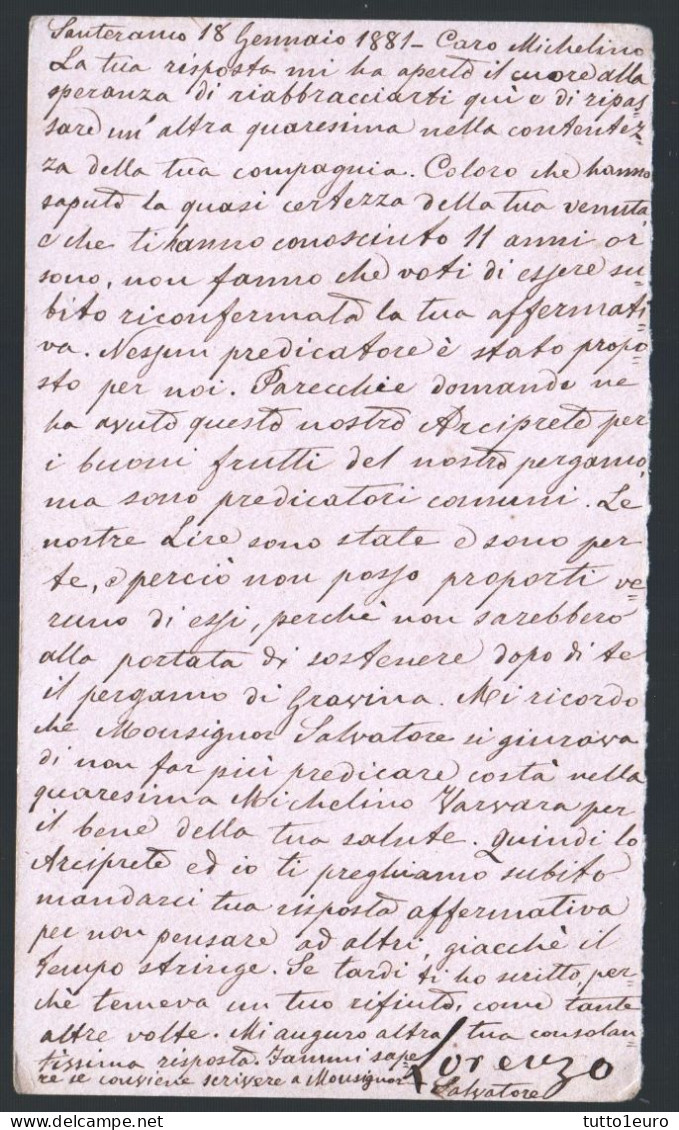 Santeramo 18 Gennaio 1881 - Caro Michelino
La tua risposta mi ha aperto il cuore alla
speranza di riabbracciarti quì e di ripas=
sare un' altra quaresima nella contentez=
za della tua compagnia. Coloro che hanno
saputo la quasi certezza della tua venuta,
e che ti hanno conosciuto 11 anni or
sono, non fanno che voti di essere su=
bito riconfermata la tua affermati=
va. Nessun predicatore è stato propo=
sto per noi. Parecchie domande ne
ha avuto questo nostro Arciprete per
i buoni frutti del nostro pergamo,
ma sono predicatori comuni. Le
nostre Lire sono state e sono per
te, e perciò non posso proporti ve=
runo di essi, perchè non sarebbero
alla portata di sostenere dopo di te
il pergamo di Gravina. Mi ricordo
che Monsignor Salvatore si giurava
di non far più predicare costà nella
quaresima Michelino Varvara per
il bene della tua salute. Quindi lo
Arciprete ed io ti preghiamo subito
mandarci tua risposta affermativa
per non pensare ad altri, giacchè il
tempo stringe. Se tardi ti ho scritto, per=
chè temeva un tuo rifiuto, come tante
altre volte. Mi auguro altra tua consolan=
tissima risposta. Fammi sape=
re se conviene scrivere a Monsignor
Salvatore
Lorenzo
tutto1euro